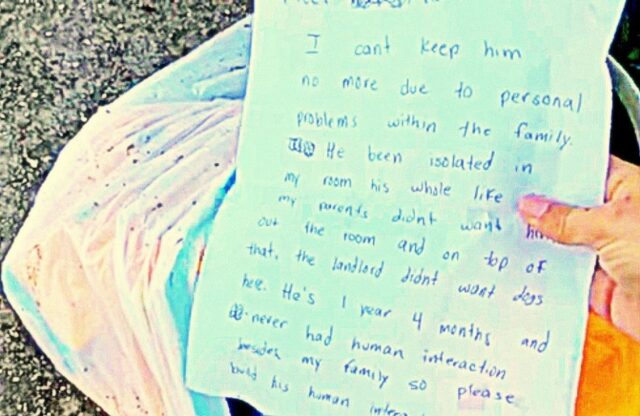 I cant keep him
no more due to personal
problems within the family.
He been isolated in
my room his whole life
my parents didnt want him
out the room and on top of
that, the landlord didnt want dogs
here. He's 1 year 4 months and
never had human interaction
besides my family so please
build his human